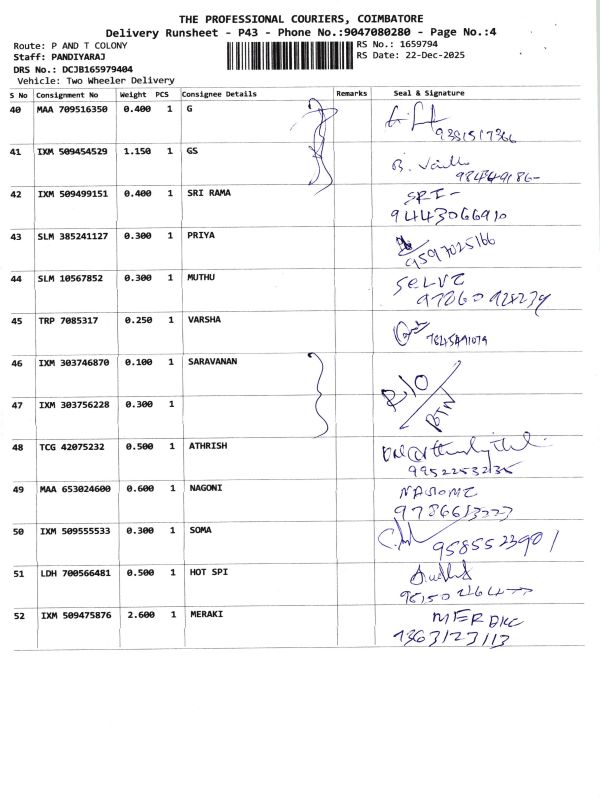 THE PROFESSIONAL COURIERS, COIMBATORE
Delivery Runsheet - P43 - Phone No.:9047080280 - Page No.:4
Route: P AND T COLONY
Staff: PANDIYARAJ
DRS No.: DCJB165979404
Vehicle: Two Wheeler Delivery
RS No.: 1659794
RS Date: 22-Dec-2025
S No Consignment No Weight PCS Consignee Details Remarks Seal & Signature
40 MAA 709516350 0.400 1 G
41 IXM 509454529 1.150 1 GS
42 IXM 509499151 0.400 1 SRI RAMA SRI-
9443066910
43 SLM 385241127 0.300 1 PRIYA
9597025166
44 SLM 10567852 0.300 1 MUTHU SELVI
45 TRP 7085317 0.250 1 VARSHA
46 IXM 303746870 0.100 1 SARAVANAN R/O
47 IXM 303756228 0.300 1 BTN
48 TCG 42075232 0.500 1 ATHRISH
9952253235
49 MAA 653024600 0.600 1 NAGONI
50 IXM 509555533 0.300 1 SOMA
9585523901
51 LDH 700566481 0.500 1 HOT SPI
52 IXM 509475876 2.600 1 MERAKI